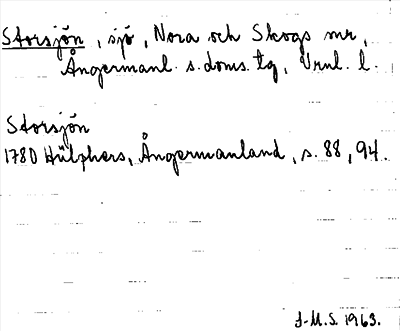 Storsjön, sjö, Nora och Skogs mr,
Ångermanl. s. doms. tg, Vrnl. l.
Storsjön
1780 Hülphers, Ångermanland, s. 88, 94.
J-M.S. 1963.